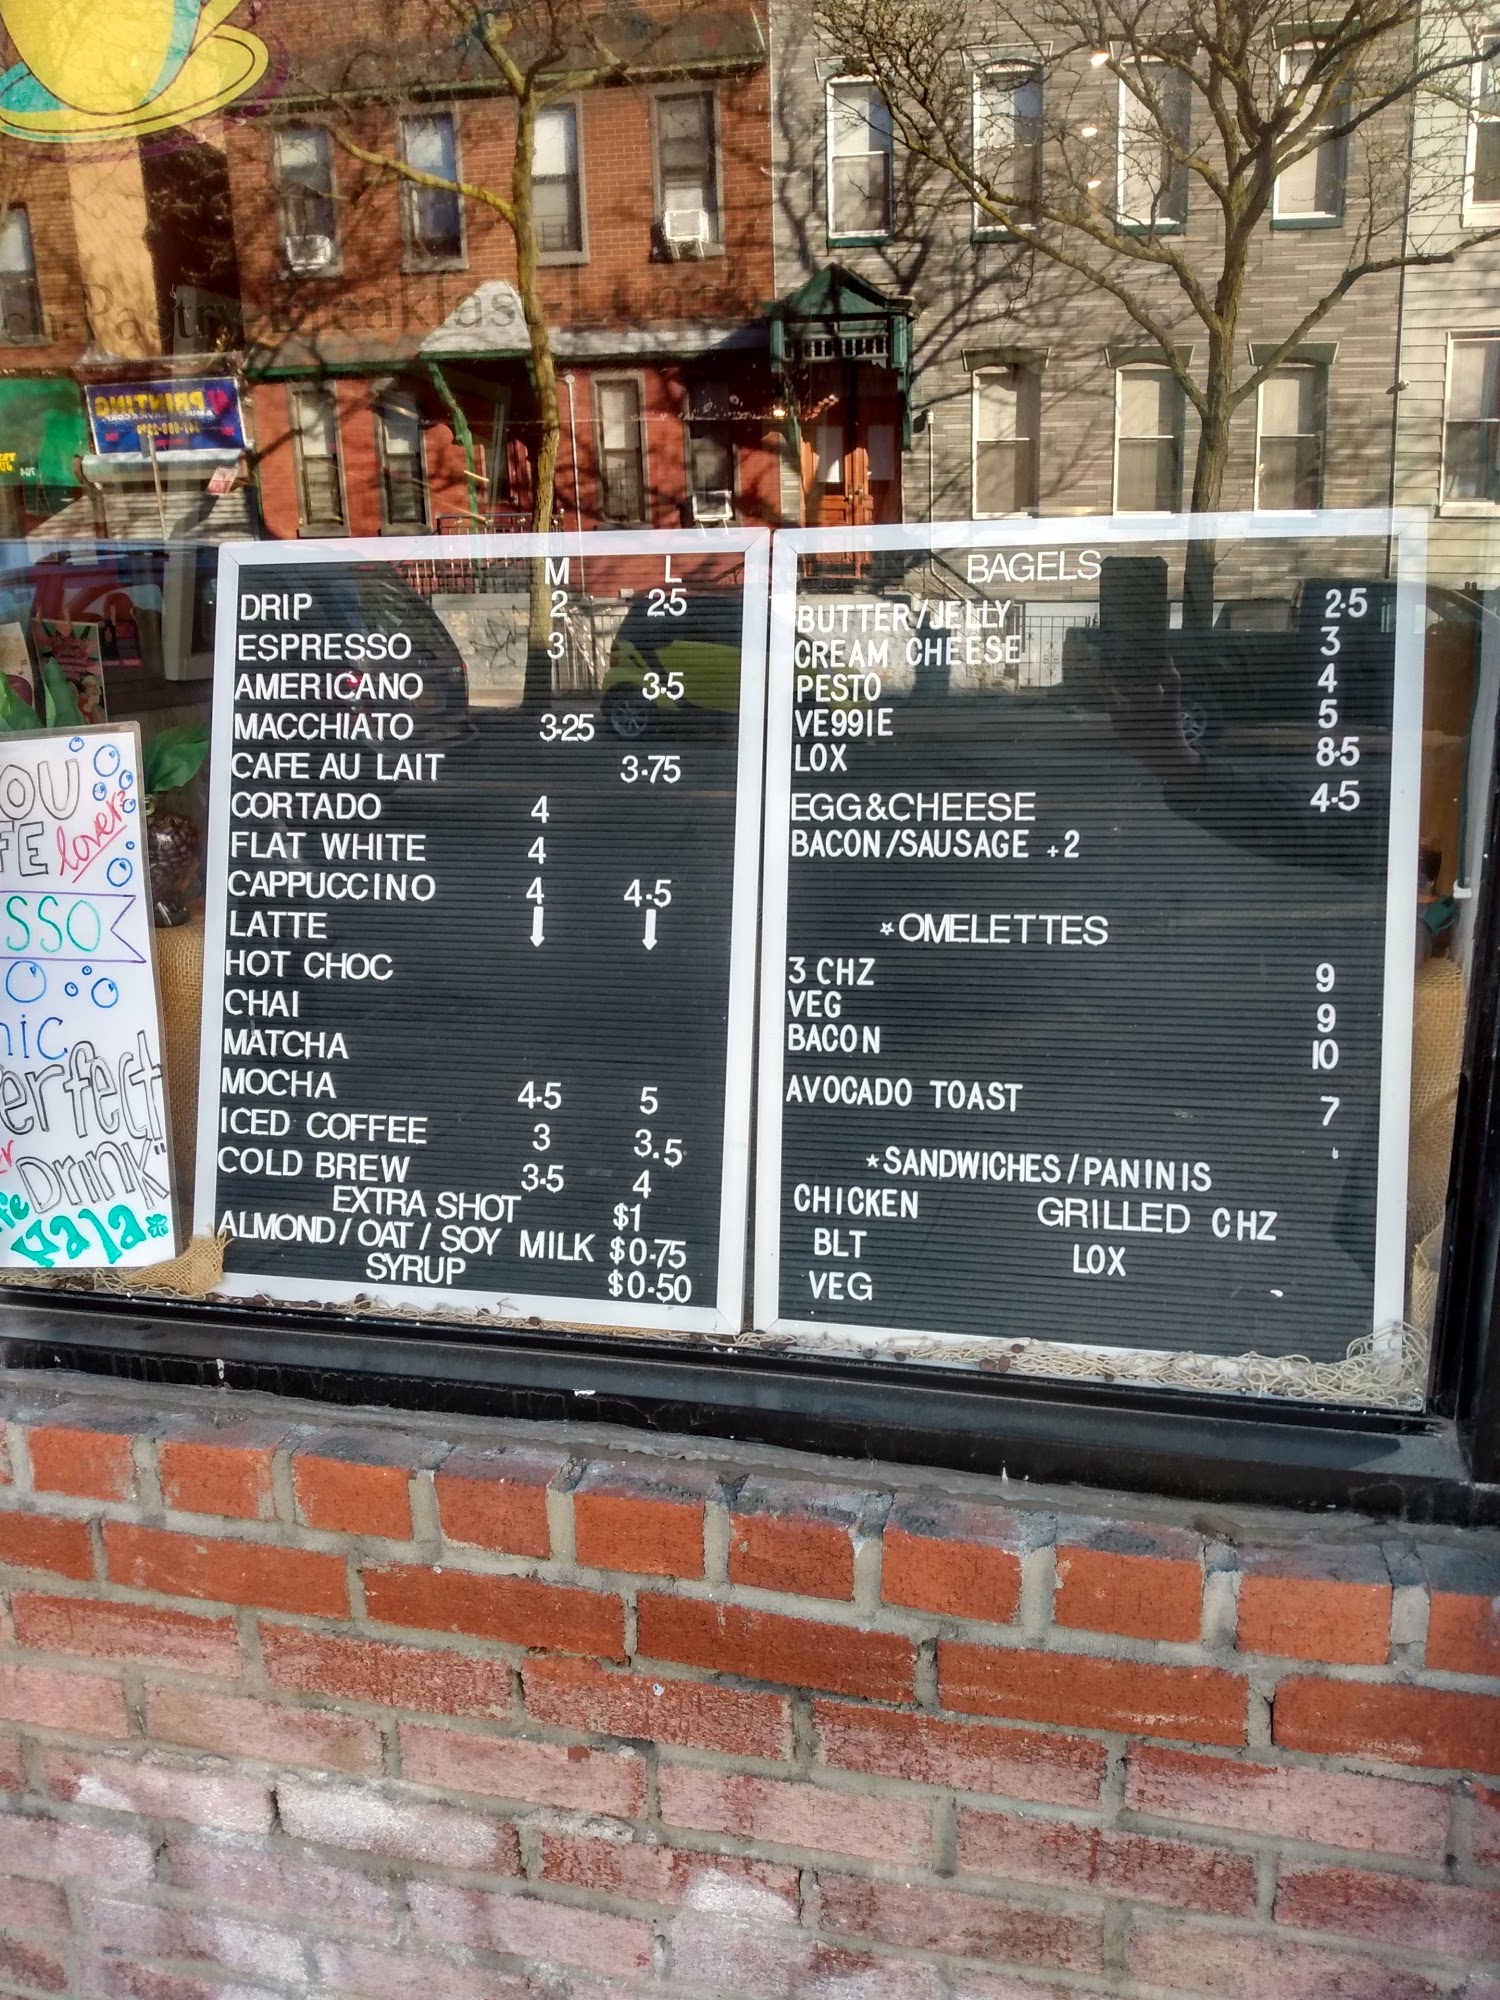 Pastry-Breakfast-Lunch
PRINTING
704
M L
DRIP 2 2.5
ESPRESSO 3
AMERICANO 3.5
MACCHIATO 3.25
CAFE AU LAIT 3.75
CORTADO 4
FLAT WHITE 4
CAPPUCCINO 4 4.5
LATTE
HOT CHOC
CHAI
MATCHA
MOCHA 4.5 5
ICED COFFEE 3 3.5
COLD BREW 3.5 4
EXTRA SHOT $1
ALMOND/OAT/SOY MILK $0.75
SYRUP $0.50
BAGELS
BUTTER/JELLY 2.5
CREAM CHEESE 3
PESTO 4
VE99IE 5
LOX 8.5
EGG&CHEESE 4.5
BACON/SAUSAGE +2
*OMELETTES
3 CHZ 9
VEG 9
BACON 10
AVOCADO TOAST 7
*SANDWICHES/PANINIS
CHICKEN GRILLED CHZ
BLT LOX
VEG
OU
FE lover?
SSO
nic
erfect
Drink"